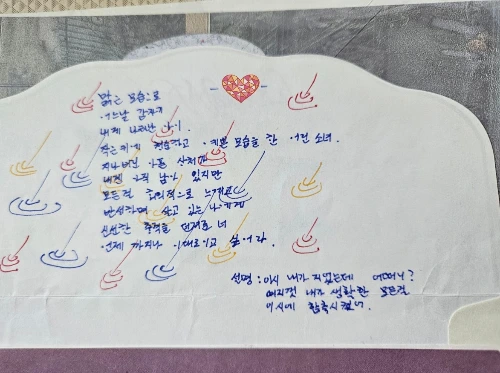 맑은 모습으로
어느날 갑자기
내게 나타난 아이.
작은키에 깨끗하고 예쁜 모습을 한 어린 소녀.
지나버린 아픈 상처가
내겐 아직 남아 있지만
모든걸 합리적으로 느끼고
반성하며 살고 있는 나에게
신선한 충격을 던져준 너
언제 까지나 이대로이고 싶어라.
설명 : 이시 내가 지었는데 어떠니?
여지껏 내가 생활한 모든걸
이시에 함축시켰어.